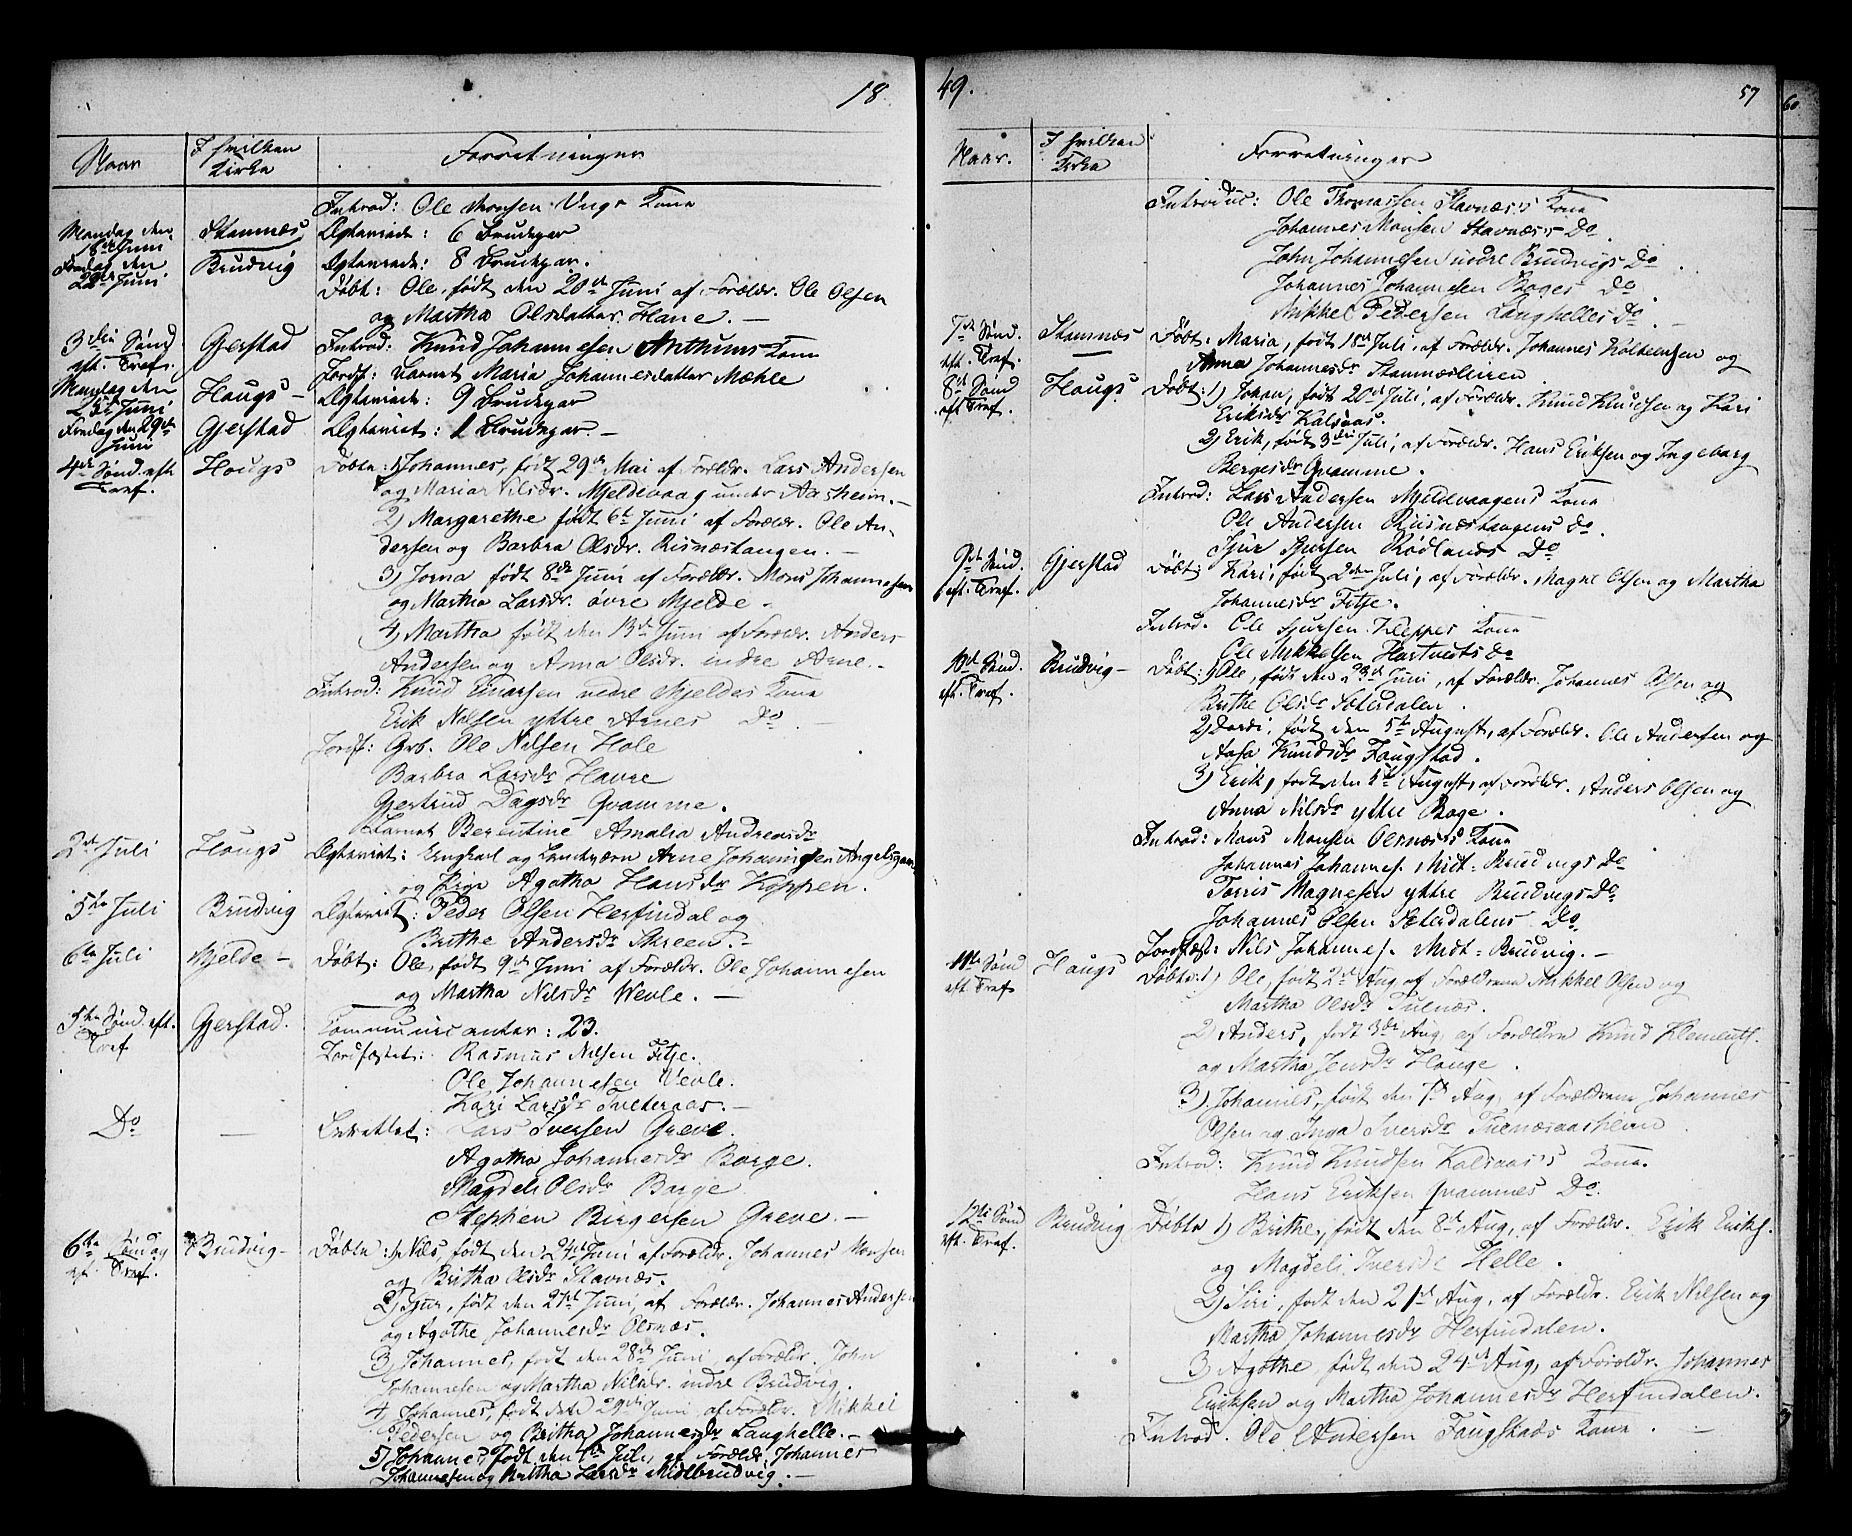 18
Naar
I hvilken
Kirke
Forretninger
Introd: Ole Monsen Unge Kone
Mandag den
18de Juni
Stamnæs
Egteviede: 6 Brudepar
Fredag den
22de Juni
Brudvig
Egteviede: 8 Brudepar.
Døbt: Ole, født den 20de Juni af Forældr. Ole Olsen
og Martha Olsdatter Hane. —
3die Sønd.
eft. Tref.
Gjerstad
Introd: Knud Johannesen Kone
Jordf: Barnet Maria Johannesdatter Mæhle
Mandag den
25de Juni
Hougs —
Egteviede: 9 Brudepar
Fredag den 29de
Juni
Gjerstad
Egteviet: 1 Brudepar. —
4de Sønd. eft
Tref.
Hougs
Døbte: 1) Johannes, født 29de Mai af Forældr. Lars Andersen
og Maria Nilsdr. Mjeldevaag under Aasheim. —
2) Margarethe født 6te Juni af Forældr. Ole An-
dersen og Barbra Olsdr. Risnæstangen. —
3) født 8de Juni af Forældr. Mons Johannesen
og Martha Larsdr. øvre Mjelde —
4) Martha født den 13de Juni af Forældr. Anders
Andersen og Anna Olsdr. indre Arne. —
Introd: Knud nedre Mjeldes Kone
Erik Nilsen yttre Arnes Do. —
Jordf: Ole Nilsen Hole
Barbra Larsdr Havre
Gjertrud Dagsdr Gramme.
Barnet Berentine Amalia Andreasdr
2den Juli
Hougs
Egteviet: Ungkarl og Arne
og Pige Agatha Hansdr Koppen.
5te Juli
Brudvig
Egteviet: Peder Olsen Herfindal og
Brithe Andersdr Skreen. —
6te Juli
Mjelde —
Døbt: Ole, født 9de Juni af Forældr. Ole Johannesen
og Martha Nilsdr Vevle. —
5te Sønd. eft.
Tref
Gjerstad.
Communicanter: 23.
Jordfæstet: Rasmus Nilsen Fitje.
Ole Johannesen Vevle.
Kari Larsdr Tveteraas. —
Do
—
Lars Iversen Greve.
Agatha Johannesdr Borge.
Magdeli Olsdr Borge
Stephen Birgersen Greve. —
6te Søndag
eft. Tref.
Brudvig —
Døbte: 1) Nils, født den 24de Juni af Forældr. Johannes Monsen
og Britha Olsdr Stavnæs.
2) Sjur, født den 27de Juni, af Forældr. Johannes Andersen
og Agothe Johannesdr Olsnæs.
3) Johannes, født den 28de Juni, af Forældr. John
Johannesen og Martha Nilsdr. indre Brudvig.
4) Johannes, født den 29de Juni af Forældr. Mikkel
Pedersen og Britha Johannesdr Langhelle. —
5) Johannes, født den 1ste Juli, af Forældr. Johannes
Johannesen og Britha Larsdr Midtbrudvig. —
49.
57
60
Naar.
I hvilken
Kirke
Forretninger
Introduc: Ole Thomassen Stavnæs's Kone
Johannes Monsen Stavnæs's Do.
John Johannesen indre Brudvigs Do.
Johannes Johannesen Boges Do
Mikkel Pedersen Langhelles Do. —
7de Sønd.
eft. Tref.
Stamnæs
Døbt: Maria, født 18de Juli, af Forældr. Johannes og
Anna Johannesdr Stamnæsleiren
8de Sønd
eft. Tref.
Hougs
Døbt: 1) Johan, født 20de Juli, af Forældr. Knud Knudsen og Kari
Eriksdr Kalsaas.
2) Erik, født 3die Juli, af Forældr. Hans Eriksen og Ingeborg
Gramme.
Introd: Lars Andersen Mjeldevaagens Kone
Ole Andersen Risnæstangens Do.
Sjur Sjursen Rødlands Do
9de Sønd
eft. Tref.
Gjerstad
Døbt: Kari, født 2den Juli, af Forældr. Magne Olsen og Martha
Johannesdr Fitje.
Introd. Ole Sjursen Kleppes Kone
Ole Mikkelsen Hartveits Do
10de Sønd.
eft. Tref.
Brudvig —
Døbt: 1) Ole, født den 23de Juni, af Forældr. Johannes Olsen og
Brithe Olsdr Sæterdalen.
2) født den 5te August, af Forældr. Ole Andersen og
Aasa Knudsdr Faugstad.
3) Erik, født den 5te August, af Forældr. Anders Olsen og
Anna Nilsdr yttre Boge.
Introd: Mons Monsen Olsnæs's Kone
Johannes Johannes. Midt-Brudvigs Do
Torris Magnesen yttre Brudvigs Do
Johannes Olsen Sæterdalens Do.
Jordfæst: Nils Johannes. Midt-Brudvig. —
11te Sønd
eft. Tref
Hougs
Døbte: 1) Ole, født 2den Aug af Forældrene Mikkel Olsen og
Martha Olsdr Tuenæs.
2) Anders, født 3die Aug. af Forældrene Knud Klements.
og Martha Jensdr Houge.
3) Johannes, født den 7de Aug, af Forældrene Johannes
Olsen og Inga Iversdr Tuenæsaasheim
Introd: Knud Knudsen Kalsaas's Kone.
Hans Eriksen Grammes Do.
12te Sønd
eft. Tref.
Brudvig
Døbte 1) Brithe, født den 8de Aug, af Forældr. Erik Eriks.
og Magdeli Iversdr Helle.
2) Siri, født den 21de Aug, af Forældr. Erik Nilsen og
Martha Johannesdr Herfindalen.
3) Agothe, født den 24de Aug, af Forældr. Johannes
Eriksen og Martha Johannesdr Herfindalen.
Introd. Ole Andersen Faugstads Kone. —